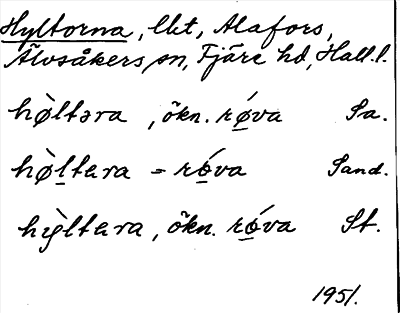 Hyltorna, lkt, Alafors,
Älvsåkers sn, Fjäre hd, Hall.l.
hø̀ltəra, ökn. rǿva Sa.
hø̀ltera = rǿva Sand.
hỳltera, ökn. rǿva St.
1951.